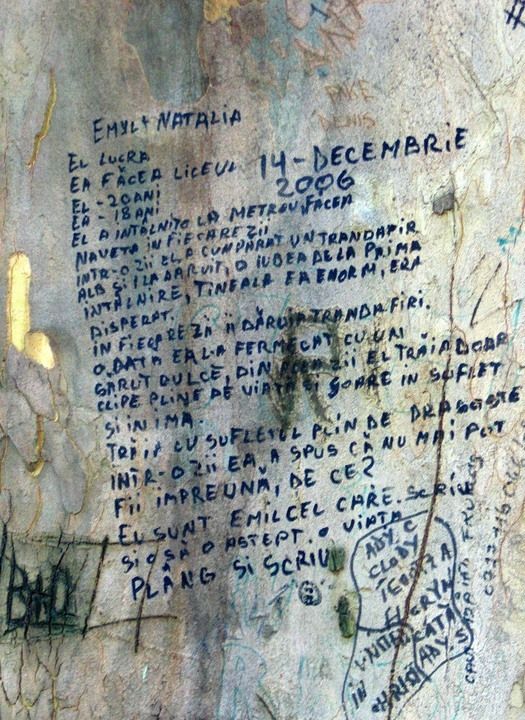 EMYL + NATALIA
14-DECEMBRIE
2006
EL LUCRA
EA FĂCEA LICEUL
EL - 20 ANI
EA - 18 ANI
EL A INTÂLNITO LA METROU, FĂCEA
NAVETA IN FIECARE ZII
INTR-O ZII EL A CUNPĂRAT UN TRANDAFIR
ALB SI I LA DĂRUIT, O IUBEA DE LA PRIMA
INTÂLNIRE, TINEA LA EA ENORM, ERA
DISPERAT.
IN FIECARE ZI II DĂRUIA TRANDAFIRI.
O DATA EA L-A FERMECAT CU UN
SĂRUT DULCE, DIN ACEA ZII EL TRĂIA DOAR
CLIPE PLINE DE VIATĂ SI SOARE IN SUFLET
SI INIMA.
TRĂIA CU SUFLETUL PLIN DE DRAGOSTE
INTR-O ZII EA, A SPUS CĂ NU MAI POT
FII IMPREUNĂ, DE CE?
EL SUNT EMIL CEL CARE SCRIU
SI O SĂ O ASTEPT O VIATA
PLÂNG SI SCRIU
B+D
ADY, C
CLODY